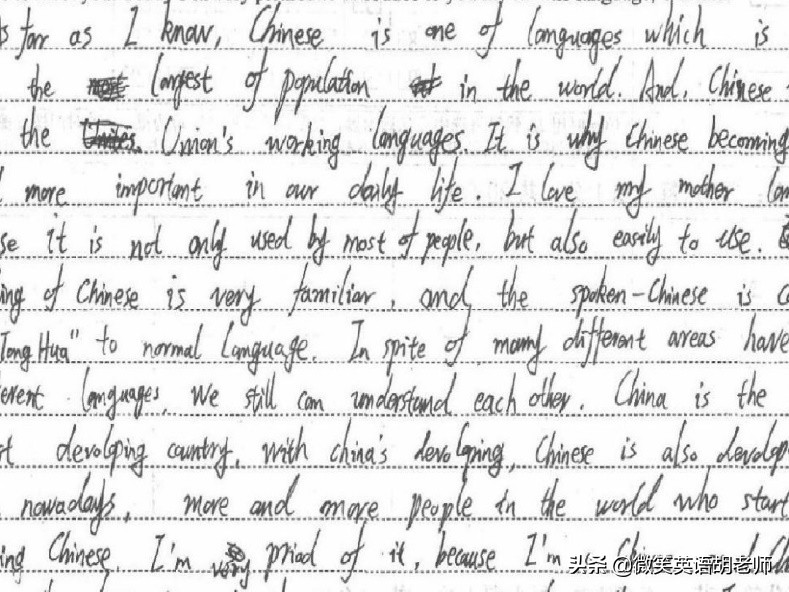 s far as I know, Chinese is one of languages which is
the largest of population in the world. And, Chinese
the Union's working languages. It is why Chinese becoming
more important in our daily life. I love my mother lan
se it is not only used by most of people, but also easily to use.
ing of Chinese is very familiar, and the spoken-Chinese is
Tong Hua" to normal language. In spite of many different areas have
erent languages, we still can understand each other. China is the
t devolping country, with china's devolping, Chinese is also devolp
nowadays, more and more people in the world who start
ing Chinese. I'm very priad of it, because I'm
头条 @微笑英语胡老师